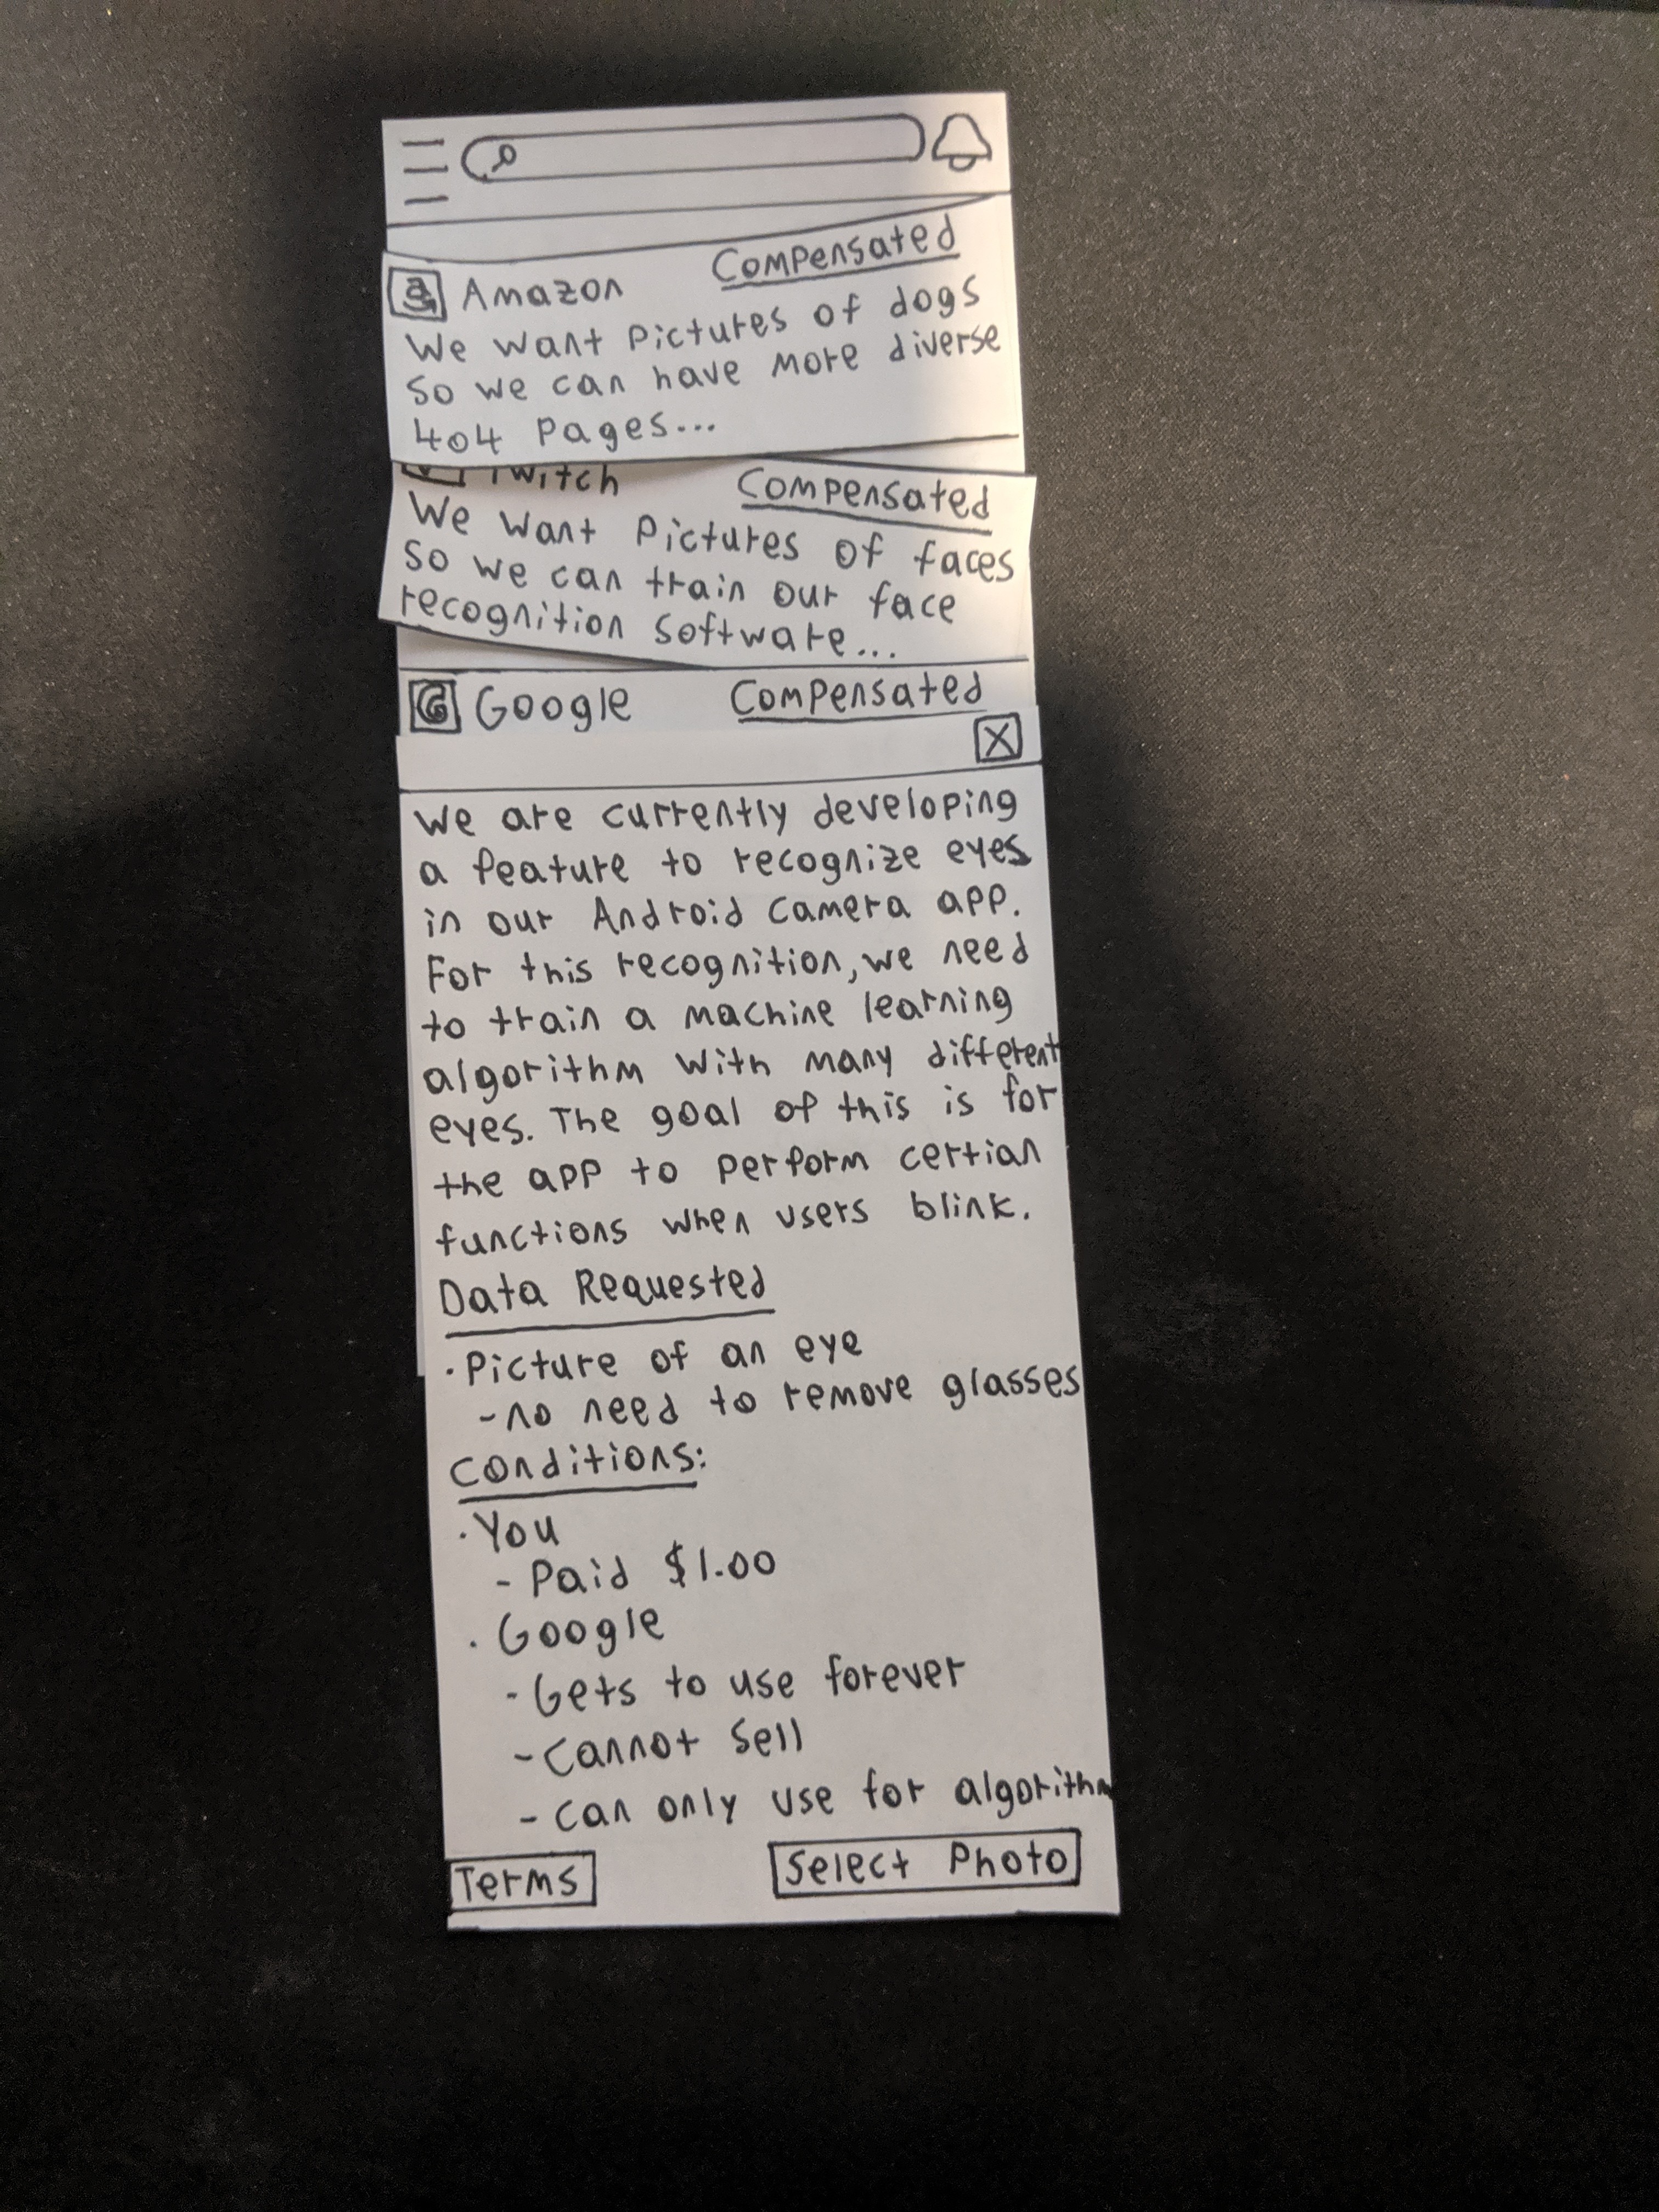 Amazon Compensated
We want pictures of dogs
so we can have more diverse
404 pages...
Twitch Compensated
We want pictures of faces
so we can train our face
recognition software...
G Google Compensated
X
We are currently developing
a feature to recognize eyes
in our Android camera app.
For this recognition, we need
to train a machine learning
algorithm with many different
eyes. The goal of this is for
the app to perform certian
functions when users blink.
Data Requested
· Picture of an eye
- no need to remove glasses
Conditions:
· You
- Paid $1.00
· Google
- Gets to use forever
- Cannot sell
- can only use for algorithm
Terms Select Photo